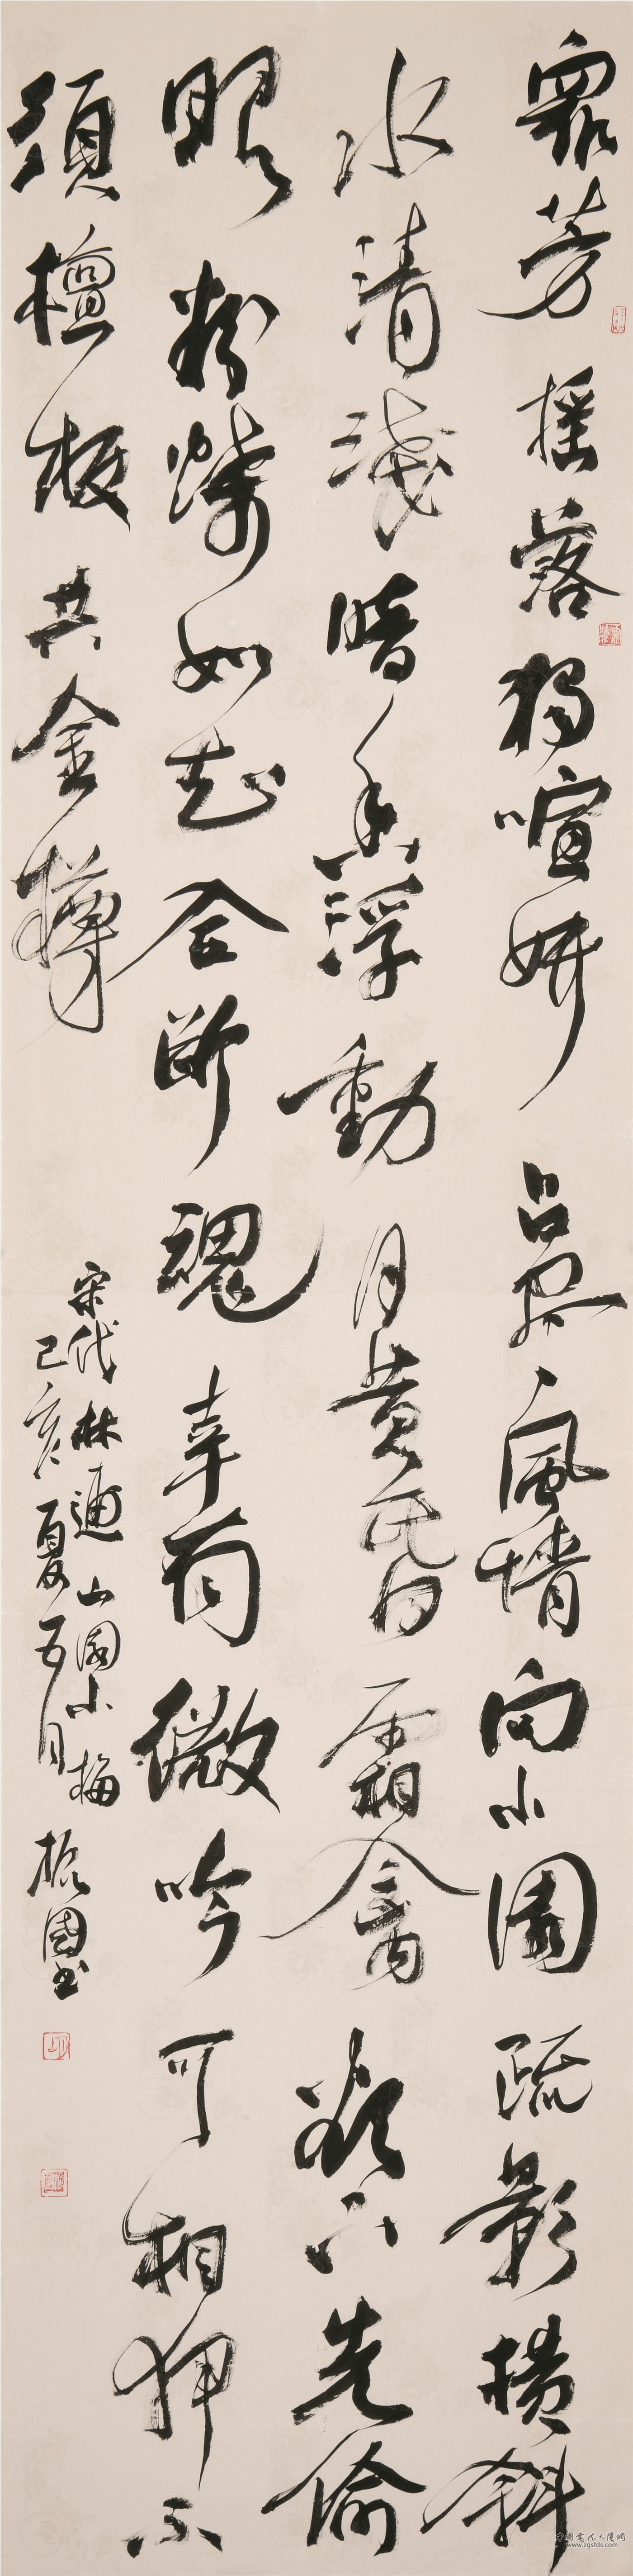 眾芳搖落獨喧妍占盡風情向小園疏影橫斜
水清淺暗香浮動月黃昏霜禽欲下先偷
眼粉蝶如知合斷魂幸有微吟可相狎不
須檀板共金樽
宋代林逋山園小梅
己亥夏五月振國書
www.zgsfds.com